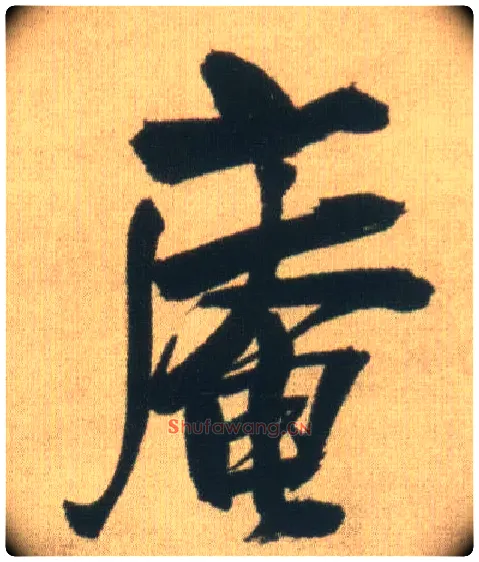 庵
Shufawang.CN